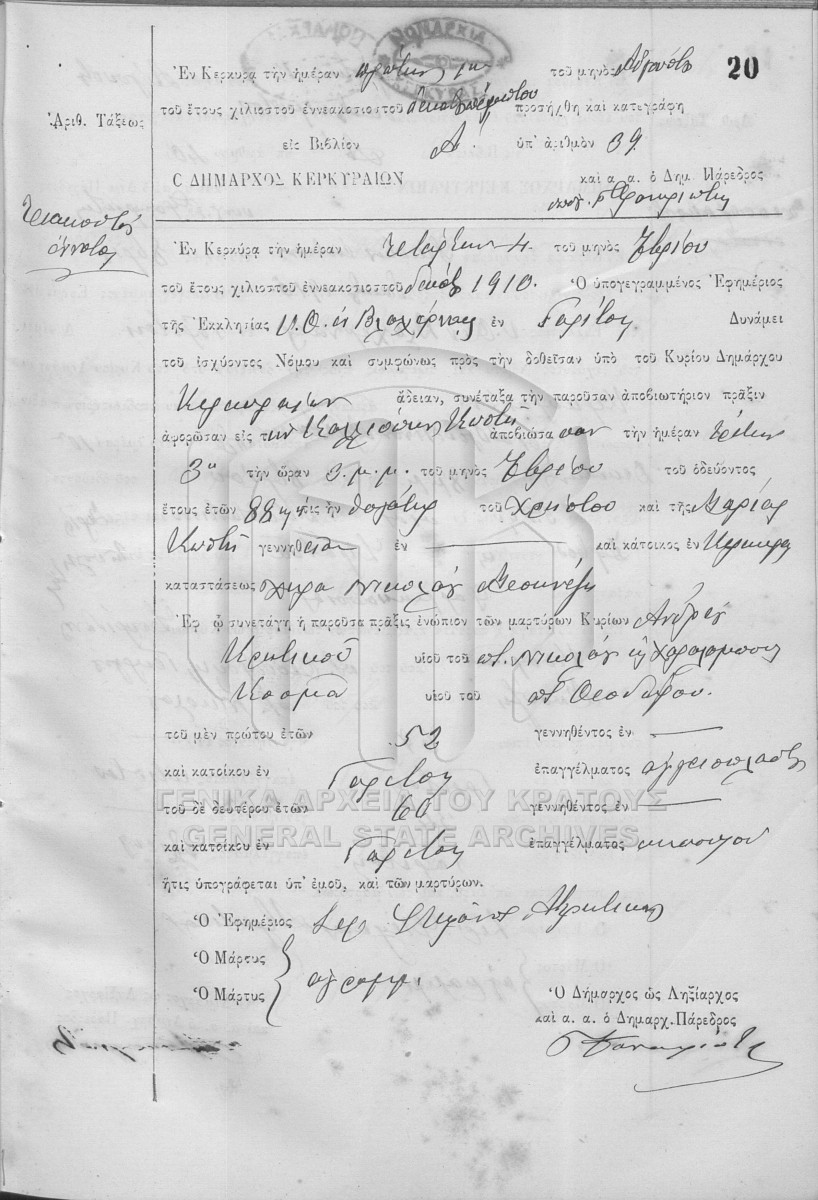 20
Ἐν Κερκύρᾳ τὴν ἡμέραν πρώτην 1ην τοῦ μηνὸς Αὐγούστου
τοῦ ἔτους χιλιοστοῦ ἐννεακοσιοστοῦ προσήχθη καὶ κατεγράφη
Ἀριθ. Τάξεως
εἰς Βιβλίον Α΄ ὑπ᾽ ἀριθμὸν 39
Ο ΔΗΜΑΡΧΟΣ ΚΕΡΚΥΡΑΙΩΝ καὶ α. α. ὁ Δημ. Πάρεδρος
Τριακοστὸς
ἔννατος
Ἐν Κερκύρᾳ τὴν ἡμέραν Τετάρτην 4 τοῦ μηνὸς
τοῦ ἔτους χιλιοστοῦ ἐννεακοσιοστοῦ δεκάτου 1910. Ὁ ὑπογεγραμμένος Ἐφημέριος
τῆς Ἐκκλησίας Υ. Θ. Βλαχέρνης ἐν Γαρίτσῃ Δυνάμει
τοῦ ἰσχύοντος Νόμου καὶ συμφώνως πρὸς τὴν δοθεῖσαν ὑπὸ τοῦ Κυρίου Δημάρχου
Κερκυραίων ἄδειαν, συνέταξα τὴν παροῦσαν ἀποβιωτήριον πρᾶξιν
ἀφορῶσαν εἰς τὴν Καλλιόπην Κωστῆ ἀποβιώσασαν τὴν ἡμέραν τρίτην
3ην τὴν ὥραν 3. μ. μ. τοῦ μηνὸς τοῦ ὁδεύοντος
ἔτους ἐτῶν 88 ἥτις ἦν θυγάτηρ τοῦ Χρήστου καὶ τῆς Μαρίας
Κωστῆ γεννηθεῖσα ἐν — καὶ κάτοικος ἐν Κερκύρᾳ
καταστάσεως χήρα Νικολάου
Ἐφ ᾧ συνετάγη ἡ παροῦσα πρᾶξις ἐνώπιον τῶν μαρτύρων Κυρίων Ἀνδρέου
Κρητικοῦ υἱοῦ τοῦ ποτ. Νικολάου καὶ Χαραλάμπους
Κοσμᾶ υἱοῦ τοῦ ποτ. Θεοδώρου.
τοῦ μὲν πρώτου ἐτῶν 52 γεννηθέντος ἐν —
καὶ κατοίκου ἐν Γαρίτσῃ ἐπαγγέλματος ἀγγειοπλάστου
ΓΕΝΙΚΑ ΑΡΧΕΙΑ ΤΟΥ ΚΡΑΤΟΥΣ
τοῦ δὲ δευτέρου ἐτῶν 60 γεννηθέντος ἐν —
GENERAL STATE ARCHIVES
καὶ κατοίκου ἐν Γαρίτσῃ ἐπαγγέλματος
ἥτις ὑπογράφεται ὑπ᾽ ἐμοῦ, καὶ τῶν μαρτύρων.
Ὁ Ἐφημέριος
Ὁ Μάρτυς
Ὁ Μάρτυς
ἀγράμμ.
Ὁ Δήμαρχος ὡς Ληξίαρχος
καὶ α. α. ὁ Δημαρχ. Πάρεδρος